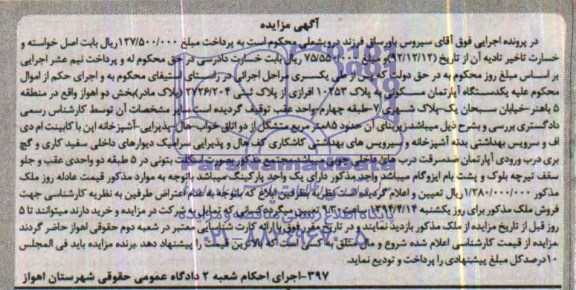 آگهی مزایده
در پرونده اجرایی فوق آقای سیروس یاورساق فرزند درویشعلی محکوم است به پرداخت مبلغ ۱۲۷/۵۰۰/۰۰۰ ریال بابت اصل خواسته و
خسارت تاخیر تادیه آن از تاریخ (۹۲/۱۲/۱۲) و مبلغ ۷۵/۵۵۰/ ریال بابت خسارت دادرسی در حق محکوم له و پرداخت نیم عشر اجرایی
بر اساس مبلغ روز محکوم به در حق دولت که پس از طی یکسری مراحل اجرائی در راستای استیفای محکوم به و اجرای حکم از اموال
محکوم علیه یکدستگاه آپارتمان مسکونی به پلاک ۱۰۲۵۳ افرازی از پلاک ثبتی ۲۷۲۶/۲۰۴ (پلاک مادر) بخش دو اهواز واقع در منطقه
۵ باهنر-خیابان سبحان یک-پلاک شهری ۷-طبقه چهارم-واحد عقب توقیف گردیده است. سایر مشخصات آن توسط کارشناس رسمی
دادگستری بررسی و بشرح ذیل میباشد: زیربنای آن حدود ۸۵متر مربع متشکل از دو اتاق خواب-هال-پذیرایی-آشپزخانه اپن با کابینت ام دی
اف و سرویس بهداشتی بدنه آشپزخانه و سرویس های بهداشتی کاشکاری کف هال و پذیرایی سرامیک دیوارهای داخلی سفید کاری و گچ
بری درب ورودی آپارتمان ضدسرقت درب های داخلی چوبی میباشد مجتمع مذکور بصورت اسکلت بتونی در ۵ طبقه دو واحدی عقب و جلو
سقف تیرچه بلوک و پشت بام ایزوگام میباشد واحد مذکور دارای یک واحد پارکینگ میباشد باتوجه به موارد مذکور قیمت عادله روز ملک
مذکور ۱/۲۸۰/۰۰۰/۰۰۰ ریال تعیین و اعلام گردیده است نظریه بطرفین ابلاغ که باتوجه به عدم اعتراض طرفین به نظریه کارشناسی جهت
فروش ملک مذکور برای روز یکشنبه ۱۳۹۴/۴/۱۴ تعیین کسانی که تمایل به شرکت در مزایده و خرید دارند میتوانند تا ۵
روز قبل از تاریخ مزایده از ملک مذکور بازدید نمایند و در تاریخ مقرر فوق با ارائه کارت شناسایی معتبر در شعبه دوم حقوقی اهواز حاضر گردند
مزایده از قیمت کارشناسی اعلام شده شروع و مال متعلق به کسی است که بالاترین قیمت را پیشنهاد دهد. برنده مزایده باید فی المجلس
۱۰درصدکل مبلغ پیشنهادی را پرداخت و تودیع نماید.
۳۹۷-اجرای احکام شعبه ۲ دادگاه عمومی حقوقی شهرستان اهواز